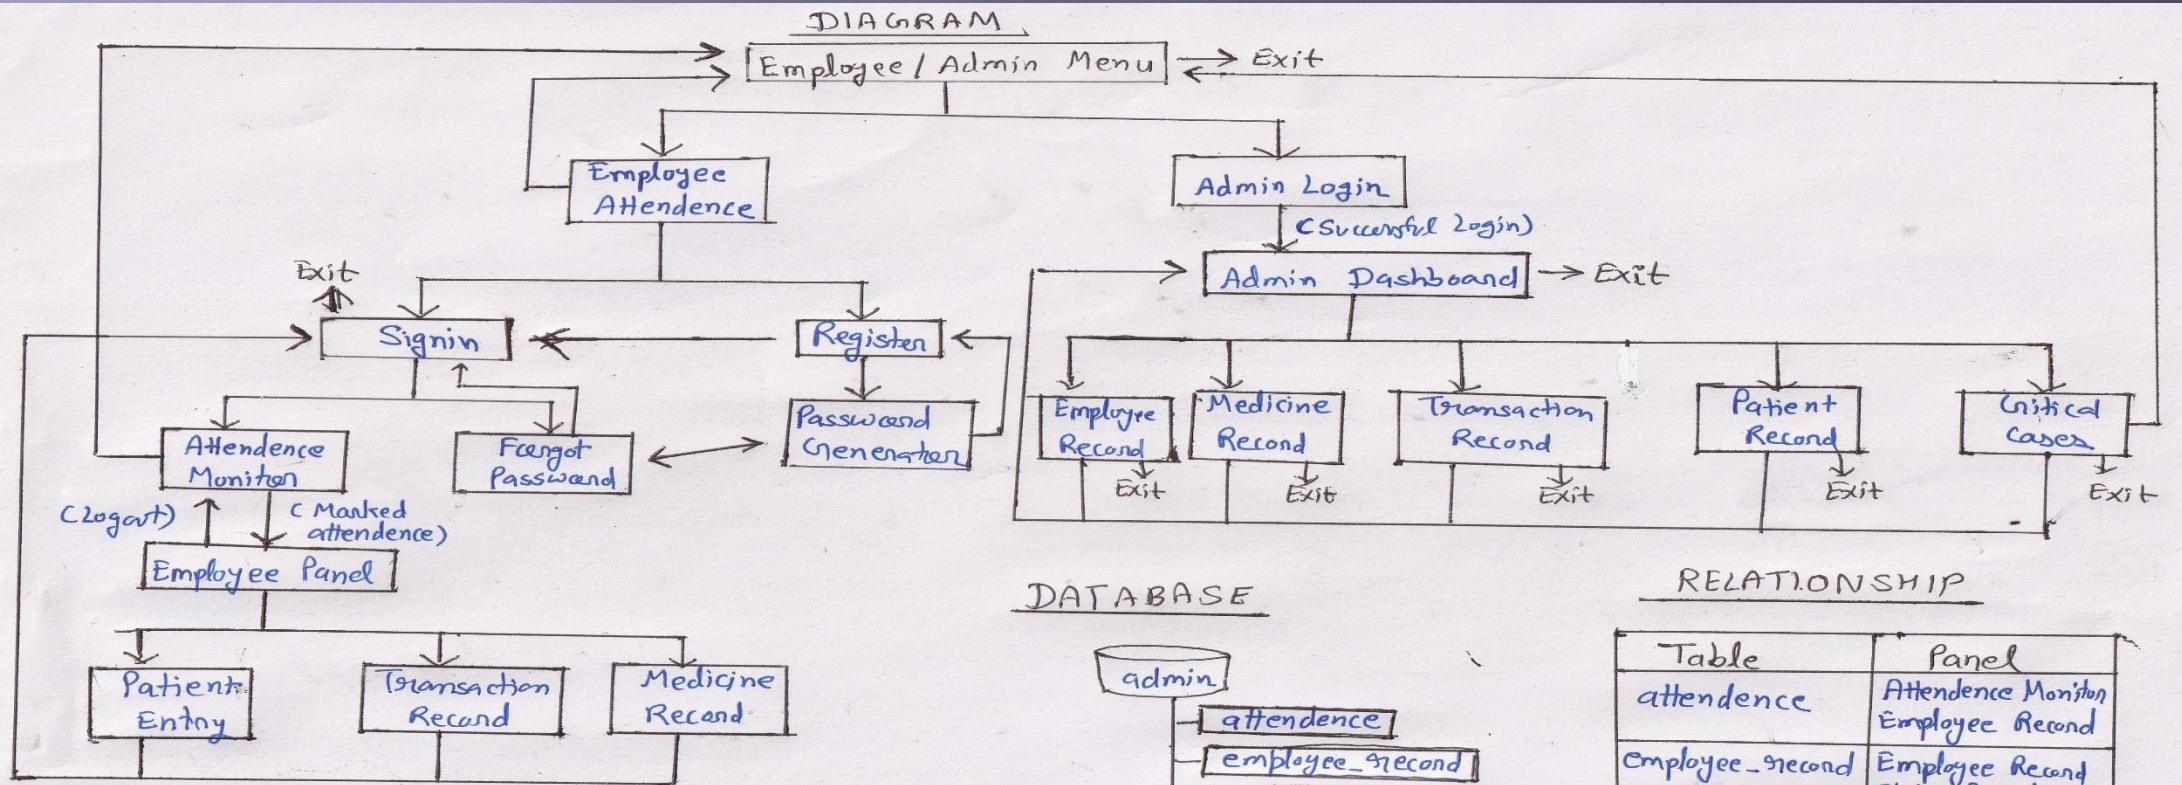 DIAGRAM
Employee / Admin Menu
Exit
Employee
Attendence
Admin Login
(Successful Login)
Admin Dashboard
Exit
Exit
Signin
Register
Password
Generator
Attendence
Monitor
Forgot
Password
(Logout)
(Marked
attendence)
Employee Panel
Patient
Entry
Transaction
Record
Medicine
Record
Employee
Record
Exit
Medicine
Record
Exit
Transaction
Record
Exit
Patient
Record
Exit
Critical
Cases
Exit
DATABASE
admin
attendence
employee_record
RELATIONSHIP
Table
Panel
attendence
Attendence Monitor
Employee Record
employee_record
Employee Record